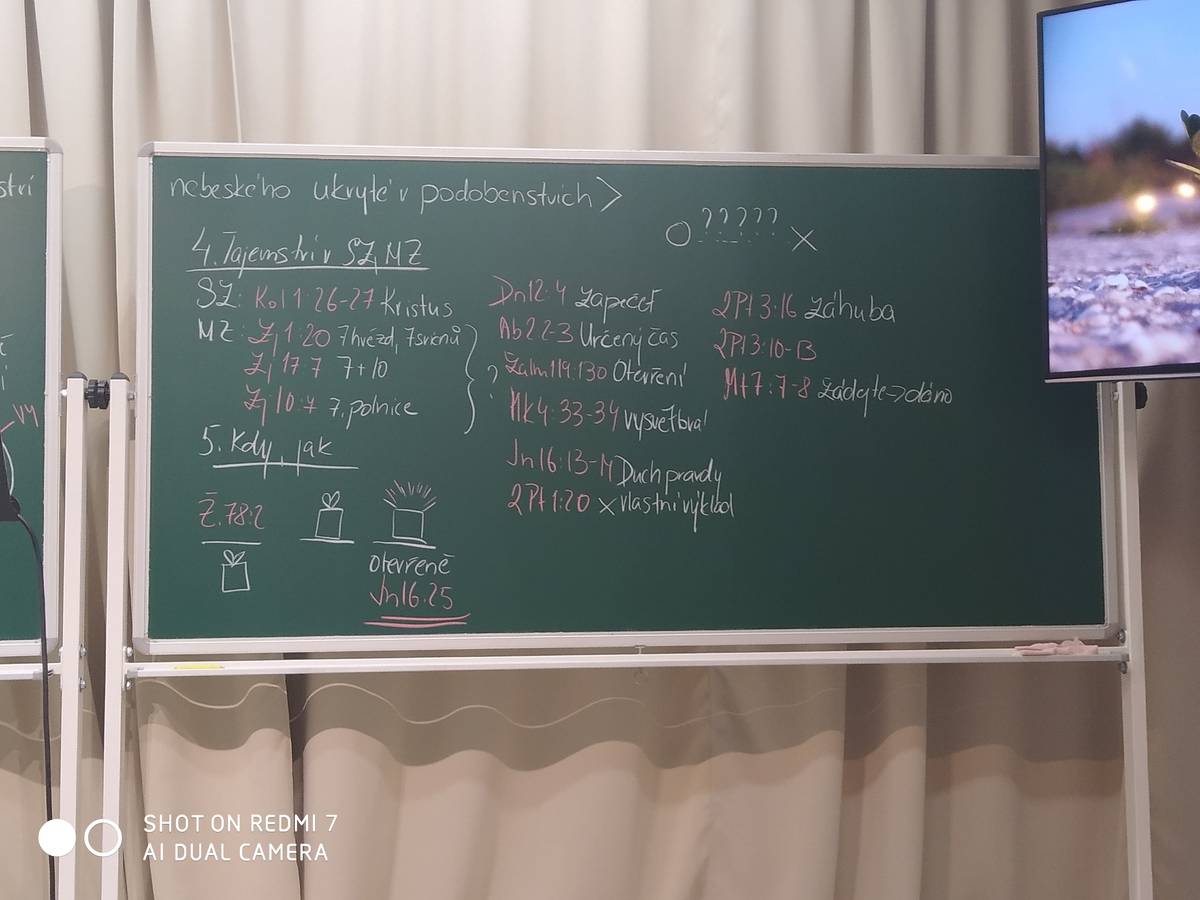 ství
vy
nebeského ukryté v podobenstvích >
O ????? X
4. Tajemství v SZ, MZ
SZ: Kol 1:26-27 Kristus
MZ: Zj 1:20 7 hvězd, 7 svícnů
Zj 17:7 7+10
Zj 10:7 7. polnice
5. Kdy, jak
Ž. 78:2
otevřeně
Jn 16:25
?
?
Dn 12:4 zapečeť
Ab 2:2-3 Určený čas
Žalm 119:130 Otevření
Mk 4:33-34 vysvětloval
Jn 16:13-14 Duch pravdy
2Pt 1:20 x vlastní výklad
2Pt 3:16 záhuba
2Pt 3:10-13
Mt 7:7-8 žádejte -> dáno
SHOT ON REDMI 7
AI DUAL CAMERA